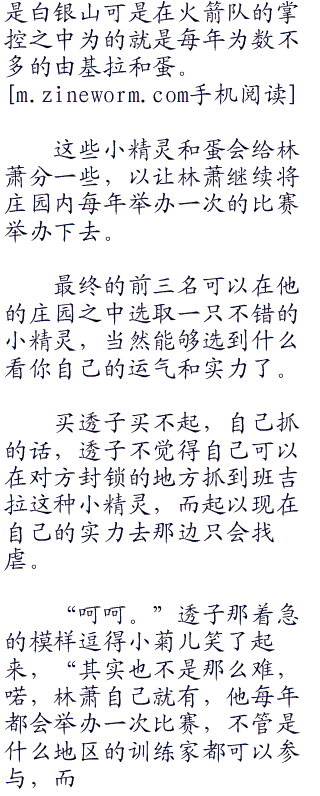 是白银山可是在火箭队的掌
控之中为的就是每年为数不
多的由基拉和蛋。
[m.zineworm.com手机阅读]
这些小精灵和蛋会给林
萧分一些，以让林萧继续将
庄园内每年举办一次的比赛
举办下去。
最终的前三名可以在他
的庄园之中选取一只不错的
小精灵，当然能够选到什么
看你自己的运气和实力了。
买透子买不起，自己抓
的话，透子不觉得自己可以
在对方封锁的地方抓到班吉
拉这种小精灵，而起以现在
自己的实力去那边只会找
虐。
“呵呵。”透子那着急
的模样逗得小菊儿笑了起
来，“其实也不是那么难，
喏，林萧自己就有，他每年
都会举办一次比赛，不管是
什么地区的训练家都可以参
与，而